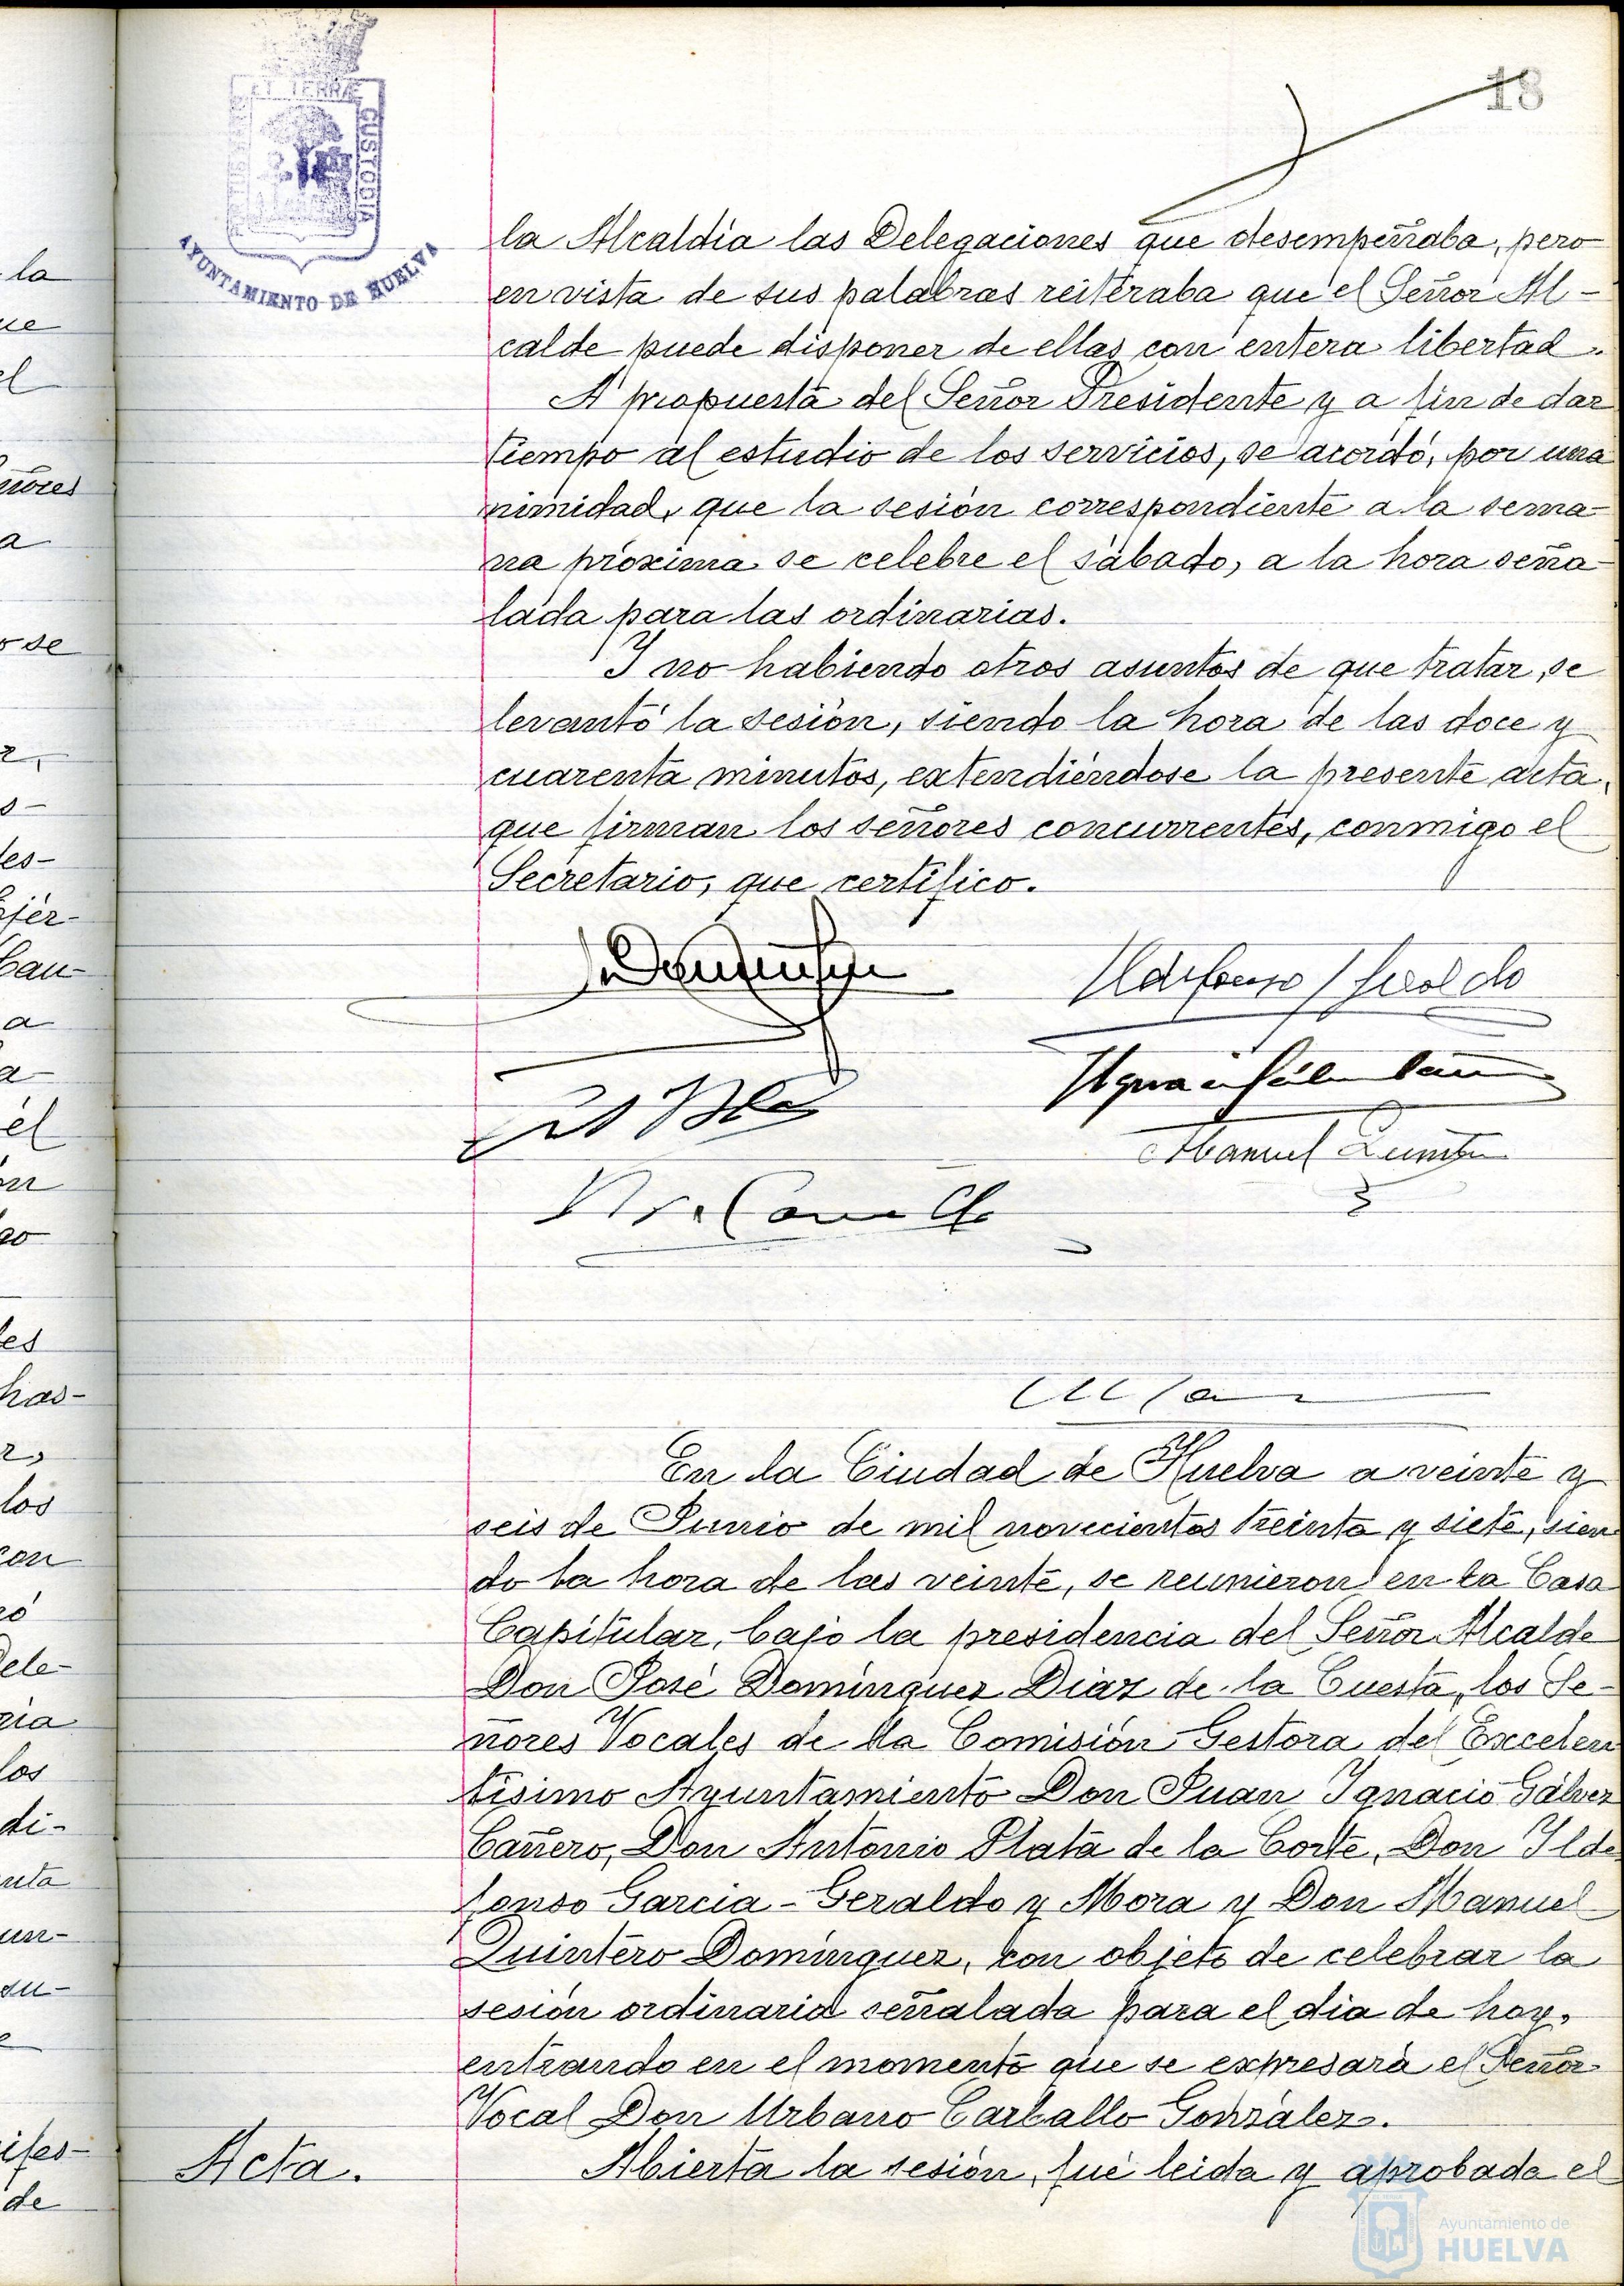 18
ET TERRÆ
CUSTODIA
AYUNTAMIENTO DE HUELVA
la Alcaldía las Delegaciones que desempeñaba, pero
en vista de sus palabras reiteraba que el Señor Al-
calde puede disponer de ellas con entera libertad.
A propuesta del Señor Presidente y a fin de dar
tiempo al estudio de los servicios, se acordó, por una
nimidad, que la sesión correspondiente a la sema-
na próxima se celebre el sábado, a la hora seña-
lada para las ordinarias.
Y no habiendo otros asuntos de que tratar, se
levantó la sesión, siendo la hora de las doce y
cuarenta minutos, extendiéndose la presente acta,
que firman los señores concurrentes, conmigo el
Secretario, que certifico.
Ildefonso Geraldo
Manuel Quintero
En la Ciudad de Huelva a veinte y
seis de Junio de mil novecientos treinta y siete, sien
do la hora de las veinte, se reunieron en la Casa
Capitular, bajo la presidencia del Señor Alcalde
Don José Domínguez Díaz de la Cuesta, los Se-
ñores Vocales de la Comisión Gestora del Excelen
tísimo Ayuntamiento Don Juan Ignacio Gálvez
Cañero, Don Antonio Plata de la Corte, Don Ilde
fonso García-Geraldo y Mora y Don Manuel
Quintero Domínguez, con objeto de celebrar la
sesión ordinaria señalada para el día de hoy,
entrando en el momento que se expresará el Señor
Vocal Don Urbano Carballo González.
Acta.
Abierta la sesión, fué leida y aprobada el
Ayuntamiento de
HUELVA